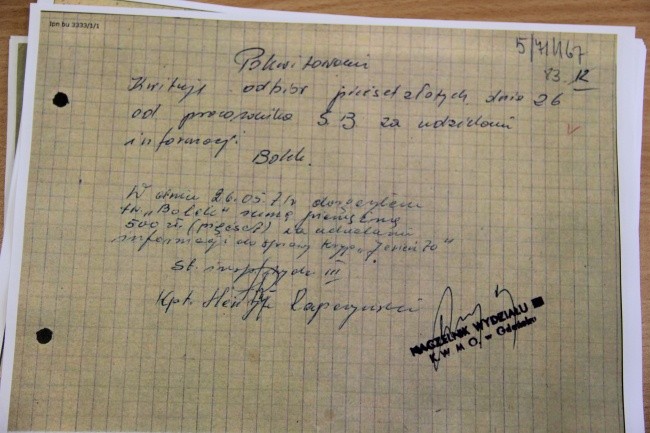 Jpn bu 3333/1/1
5/7/1167
83. 12
Pokwitowanie
Kwituję odbiór pięćset złotych dnia 26
od pracownika S.B. za udzielenie
informacji.
Bolek.
W dniu 26.05.71r doręczyłem
tw. „Bolek" sumę pieniężną
500 zł. (pięćset) za udzielenie
informacji do sprawy kryp „Jesień 70"
St. insp. Wydz III
Kpt.
NACZELNIK WYDZIAŁU III
K.W M O. w Gdańsku